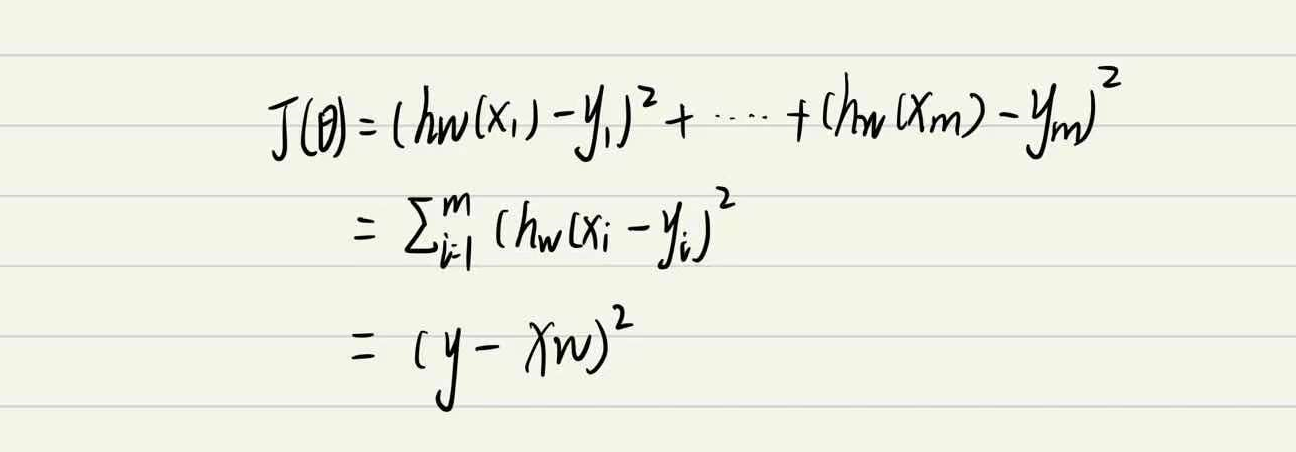 J(θ) = (hw(x₁) - y₁)² + ····· + (hw(xm) - ym)²
= ∑ᵢ₌₁ᵐ (hw(xi - yi)²
= (y - Xw)²